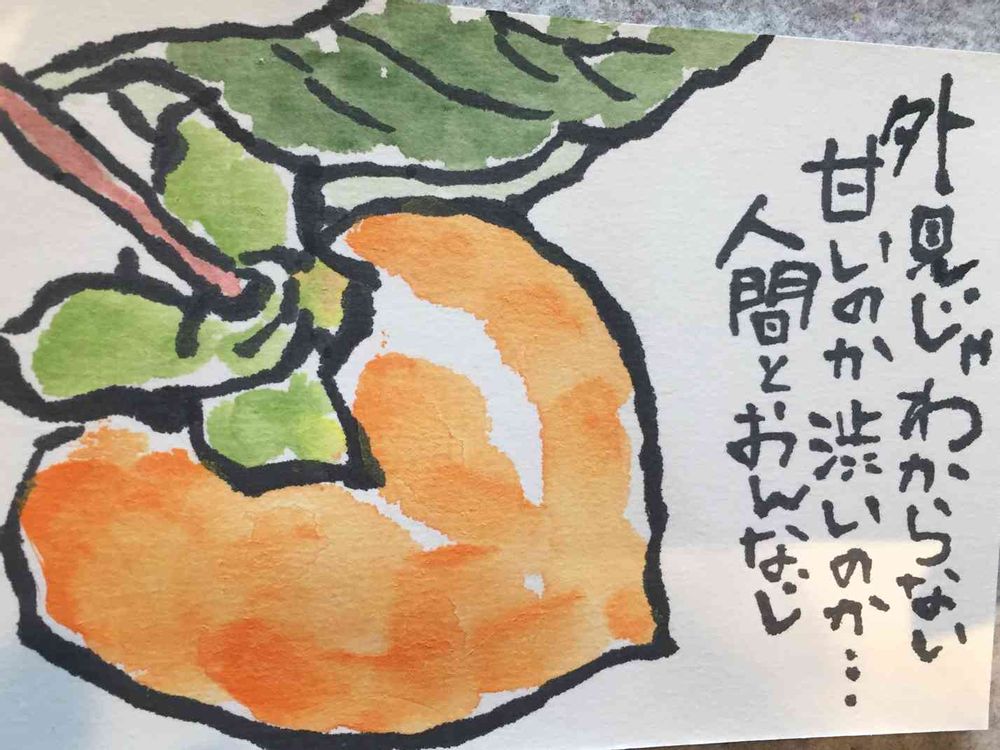 外見じゃわからない
甘いのか渋いのか…
人間とおんなじ